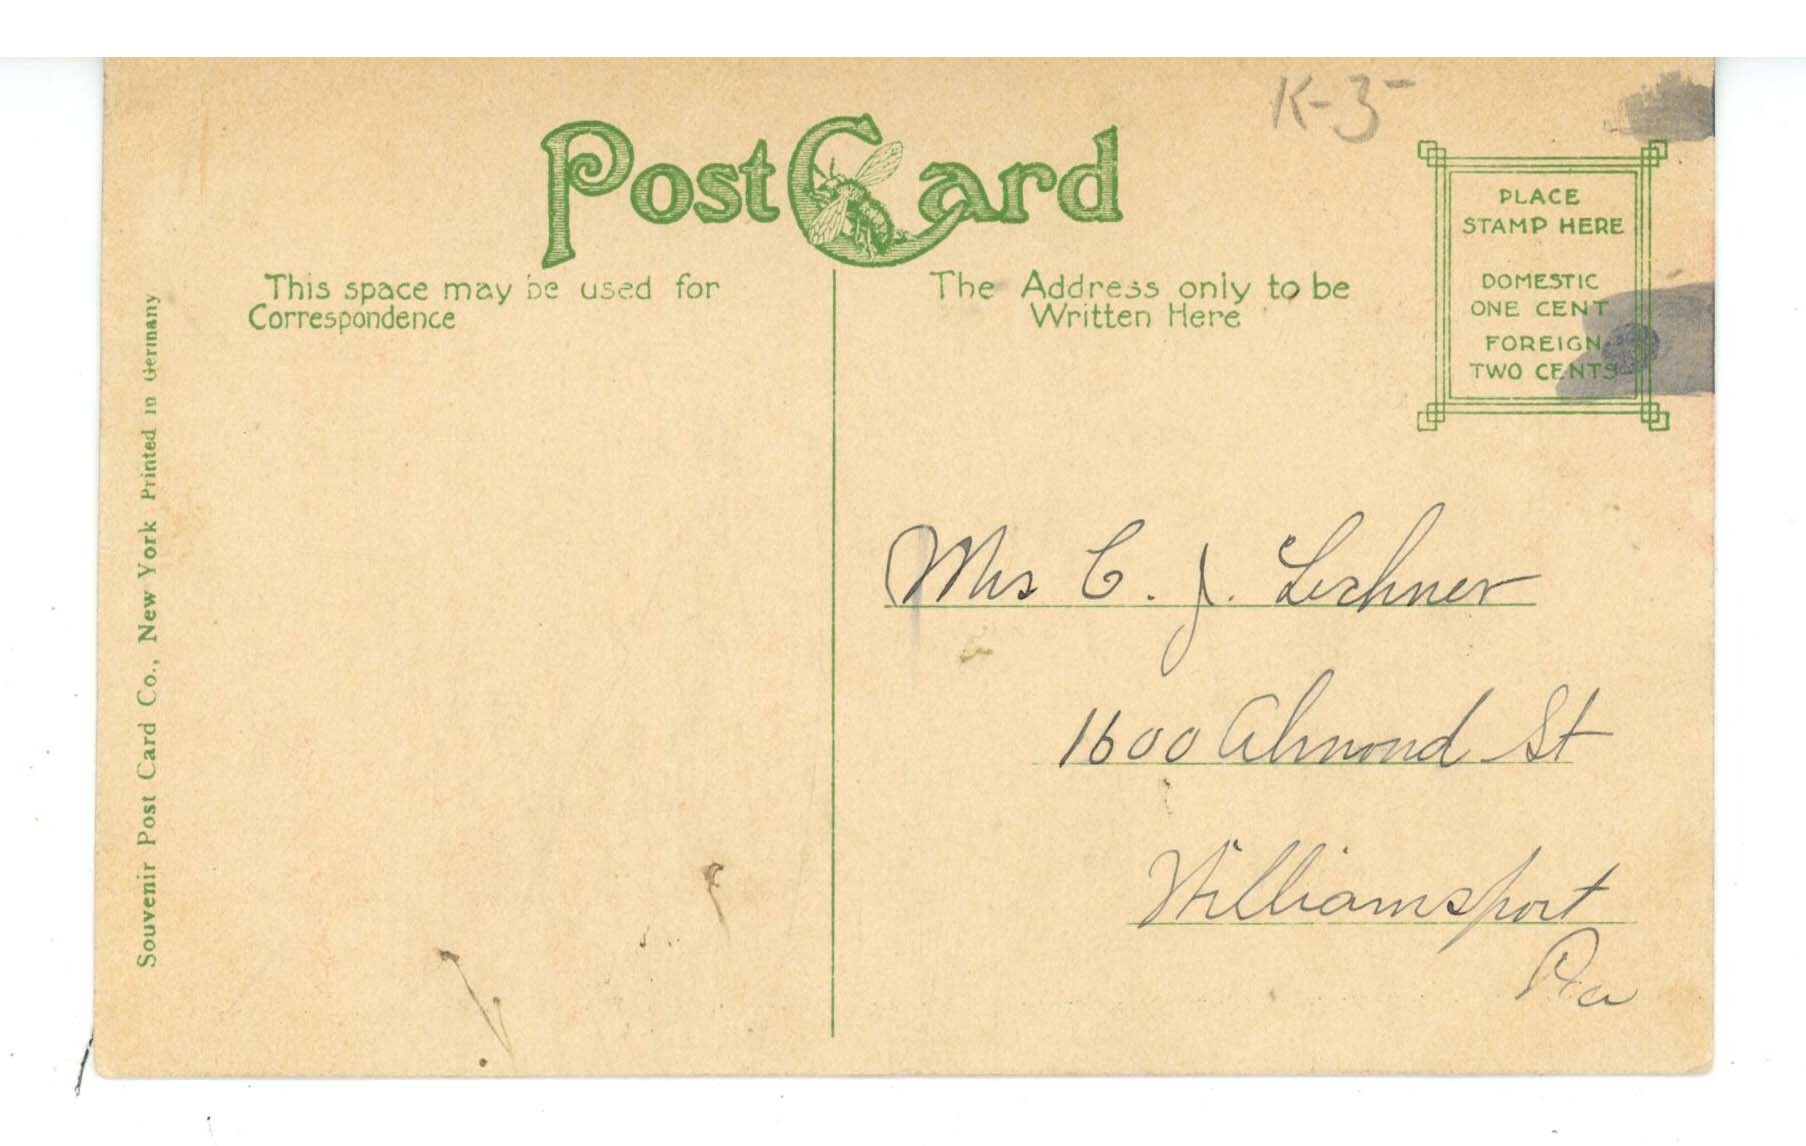 K-3-
Post Card
PLACE
STAMP HERE
DOMESTIC
ONE CENT
FOREIGN
TWO CENTS
This space may be used for
Correspondence
The Address only to be
Written Here
Mrs C. J. Lechner
1600 Almond St
Williamsport
Pa
Souvenir Post Card Co., New York Printed in Germany